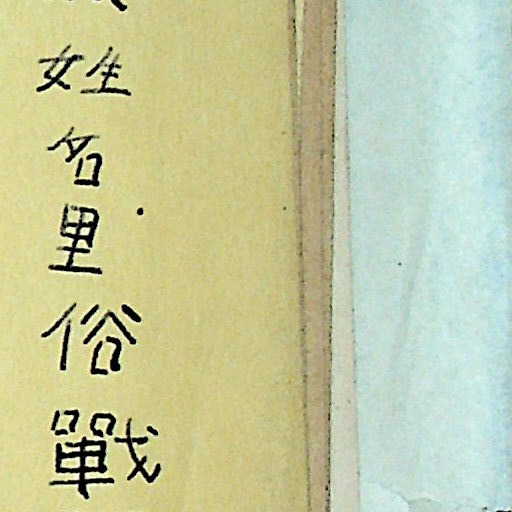 姓名里俗戰